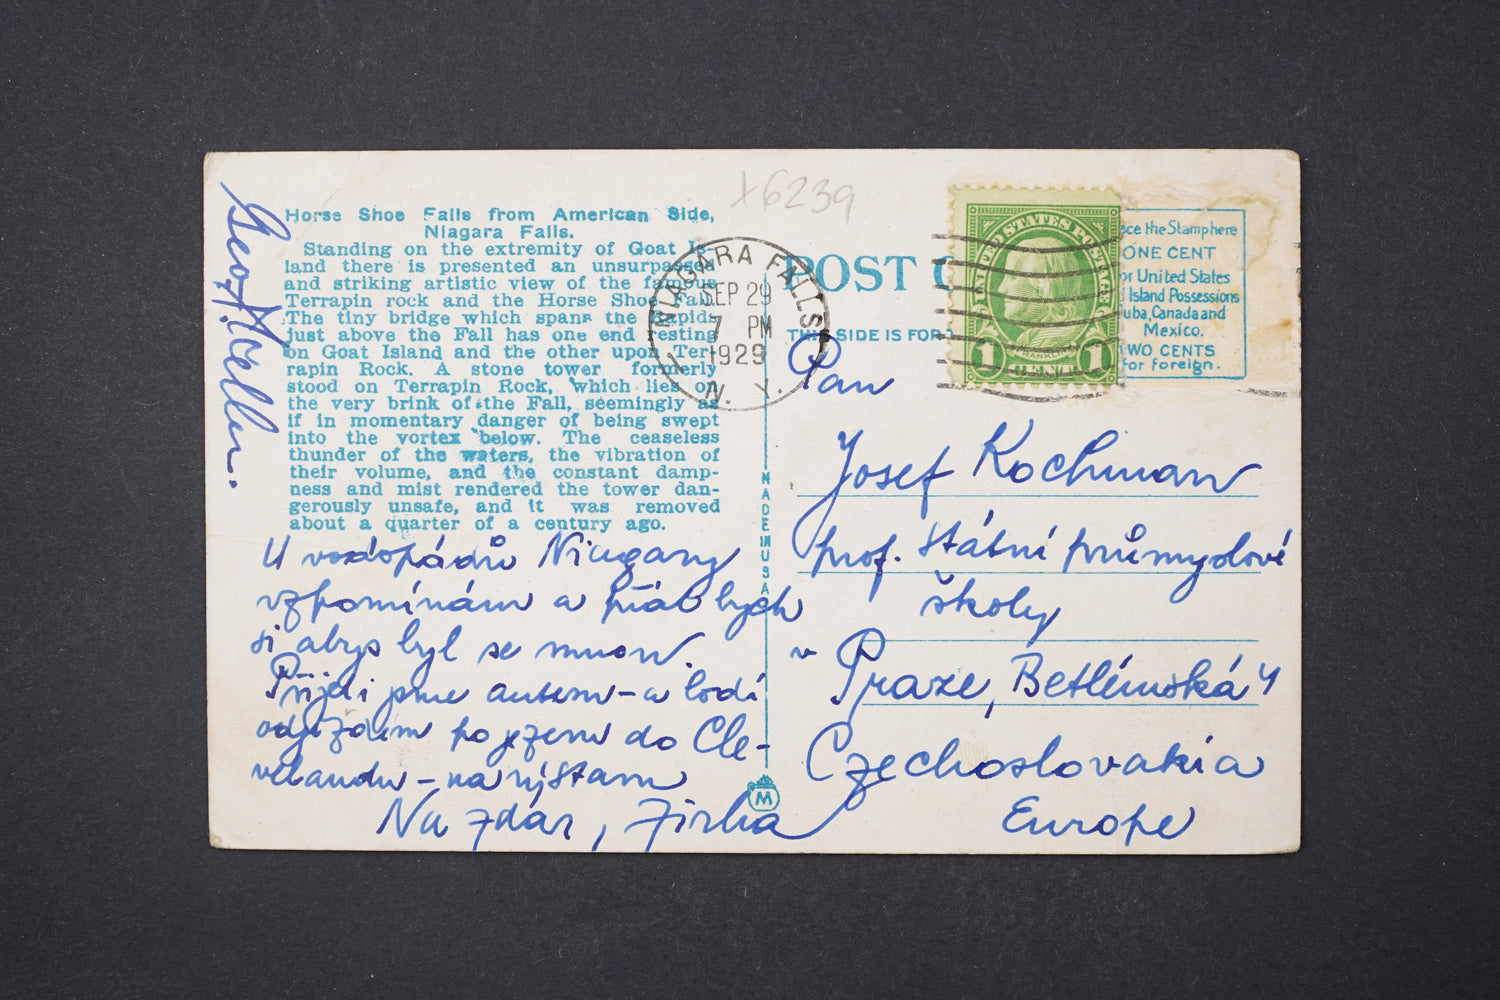 x6239
Horse Shoe Falls from American Side,
Niagara Falls.
Standing on the extremity of Goat Is-
land there is presented an unsurpassed
and striking artistic view of the famous
Terrapin rock and the Horse Shoe Fall.
The tiny bridge which spans the Rapids
just above the Fall has one end resting
on Goat Island and the other upon Ter-
rapin Rock. A stone tower formerly
stood on Terrapin Rock, which lies on
the very brink of the Fall, seemingly as
if in momentary danger of being swept
into the vortex below. The ceaseless
thunder of the waters, the vibration of
their volume, and the constant damp-
ness and mist rendered the tower dan-
gerously unsafe, and it was removed
about a quarter of a century ago.
U vodopádů Niagary
vzpomínám a přál bych
si abys byl se mnou.
Přijel jsme autem – a lodí
odjíždím po jezeru do Cle-
velandu – na výstavu
Na zdar, Jirka
NIAGARA FALLS
SEP 29
7 PM
1929
N. Y.
POST C
THIS SIDE IS FOR
UNITED STATES POSTAGE
FRANKLIN
1 CENT 1
ce the Stamp here
ONE CENT
or United States
Island Possessions
uba, Canada and
Mexico.
WO CENTS
for foreign.
MADE IN USA
M
Pan
Josef Kochman
prof. státní průmyslové
školy
v Praze, Betlémská 4
Czechoslovakia
Europe